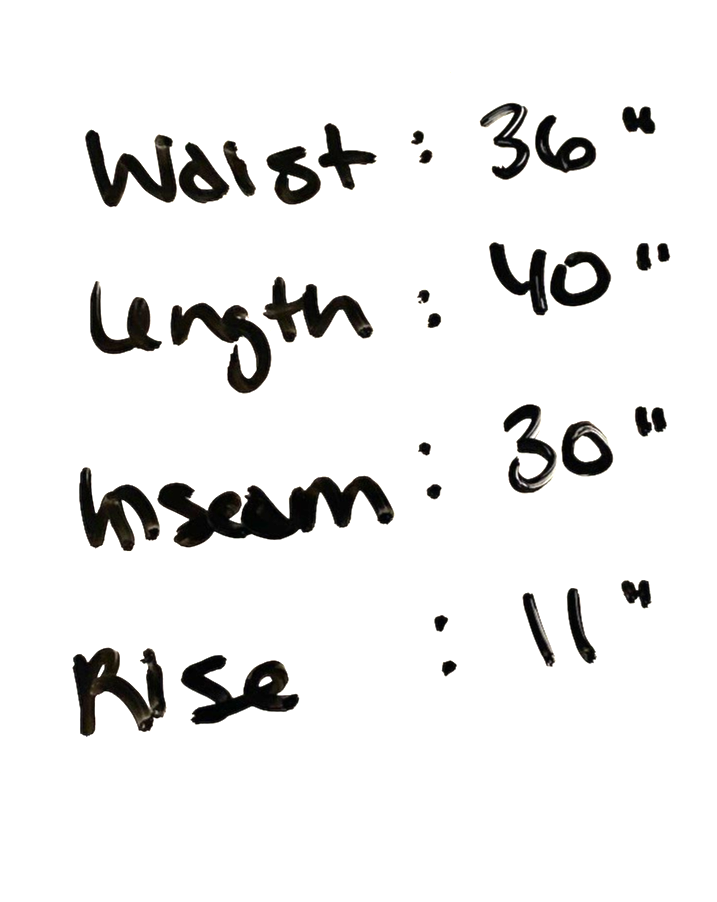 Waist : 36"
Length : 40"
Inseam : 30"
Rise : 11"